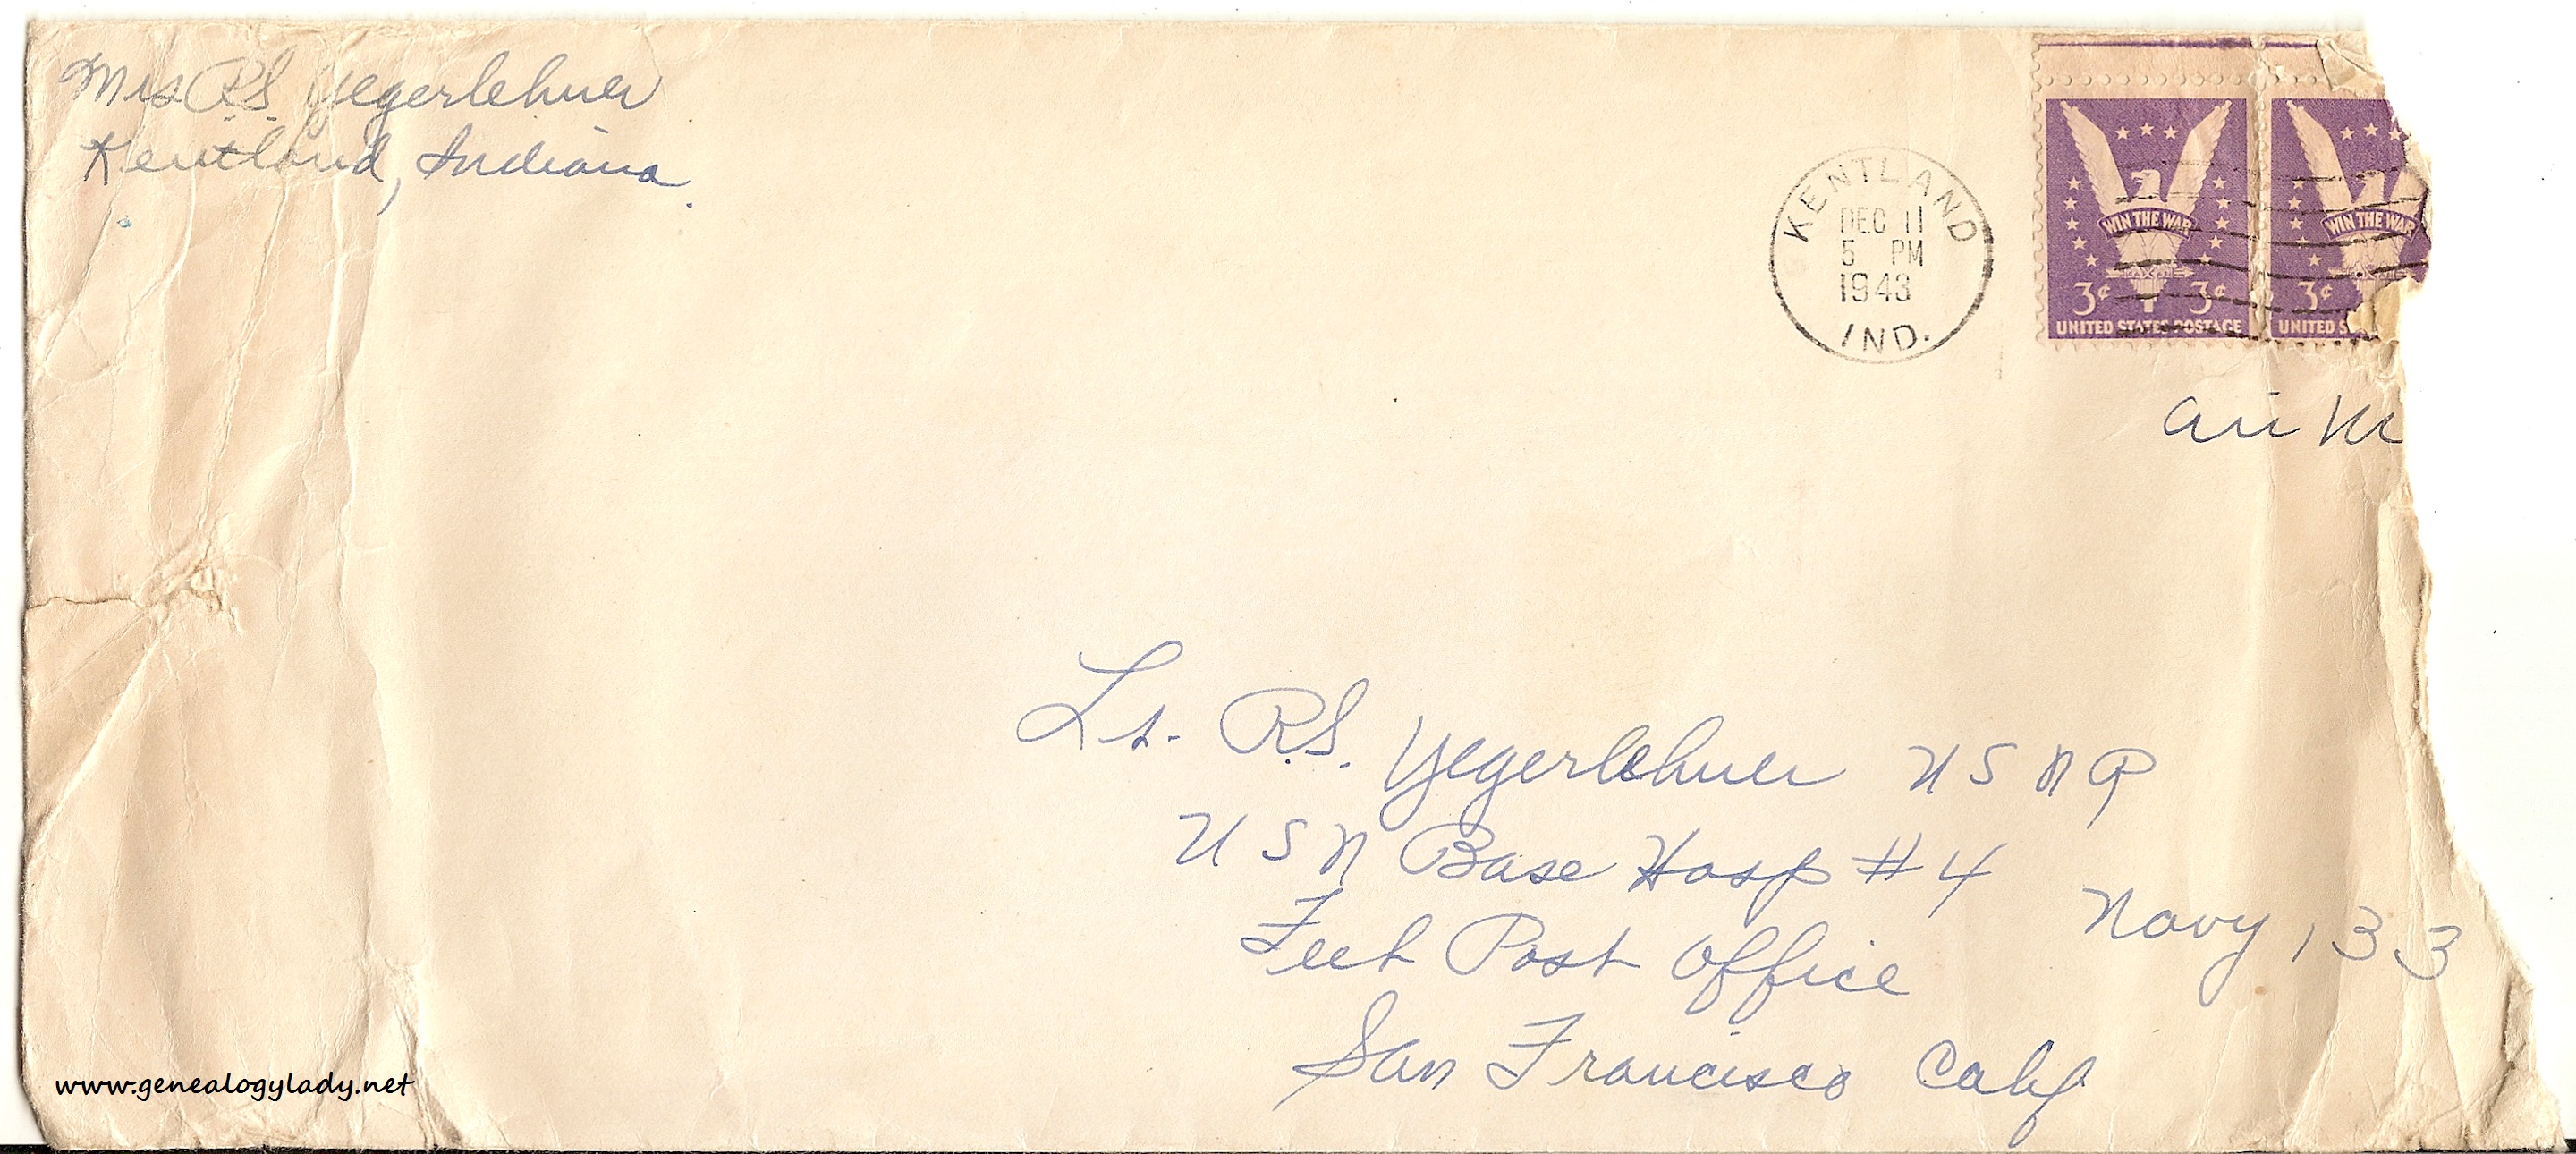 Mrs R.S. Yegerlehner
Kentland, Indiana.
KENTLAND
DEC 11
5 PM
1943
IND.
WIN THE WAR
3¢ 3¢
UNITED STATES POSTAGE
WIN THE WAR
3¢
UNITED S
air
Lt. R.S. Yegerlehner U S N R
U S N Base Hosp #4
Navy 133
Fleet Post Office
San Francisco Calif
www.genealogylady.net